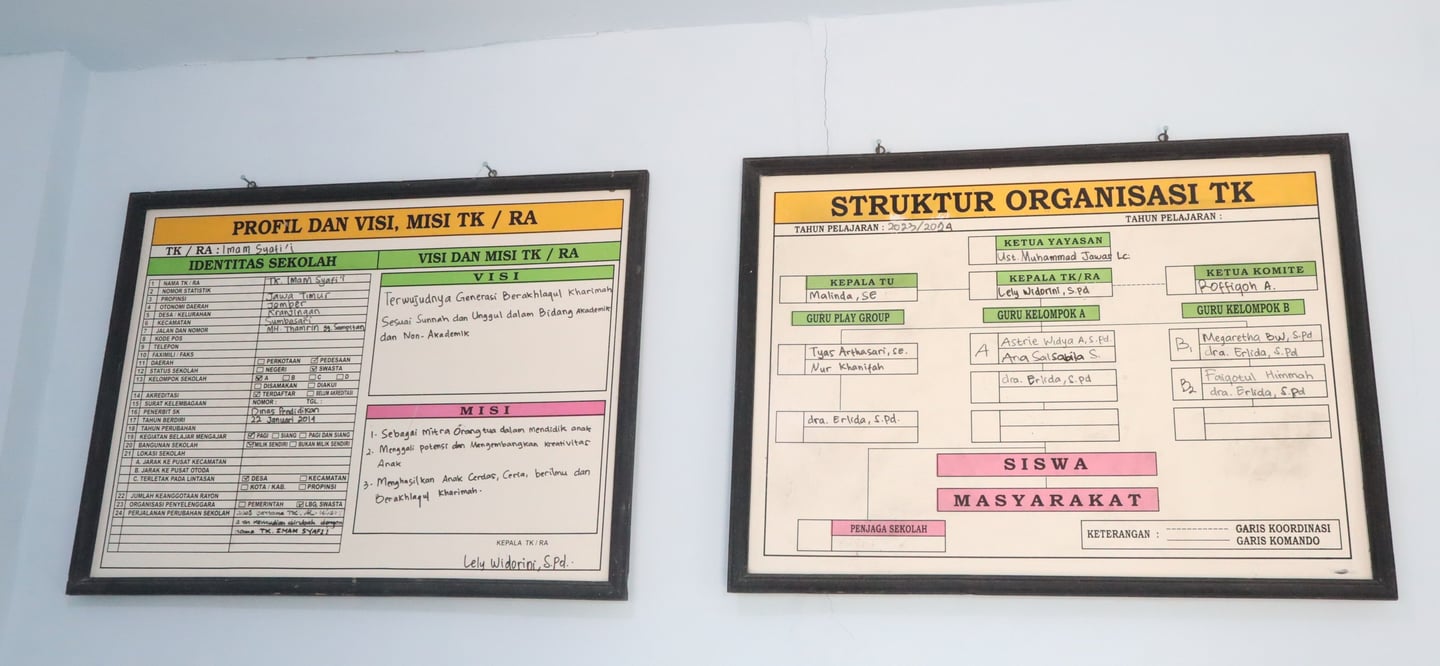 PROFIL DAN VISI, MISI TK / RA
TK / RA : Imam Syafi'i
IDENTITAS SEKOLAH
1 NAMA TK / RA TK. Imam Syafi'i
2 NOMOR STATISTIK
3 PROPINSI Jawa Timur
4 OTONOMI DAERAH Jember
5 DESA / KELURAHAN Kranjingan
6 KECAMATAN Sumbasari
7 JALAN DAN NOMOR MH. Thamrin gg.
8 KODE POS
9 TELEPON
10 FAXIMILI / FAKS
11 DAERAH PERKOTAAN PEDESAAN
12 STATUS SEKOLAH NEGERI SWASTA
13 KELOMPOK SEKOLAH A B C D
DISAMAKAN DIAKUI
14 AKREDITASI TERDAFTAR BELUM AKREDITASI
15 SURAT KELEMBAGAAN NOMOR : TGL :
16 PENERBIT SK Dinas Pendidikan
17 TAHUN BERDIRI 22 Januari 2014
18 TAHUN PERUBAHAN
19 KEGIATAN BELAJAR MENGAJAR PAGI SIANG PAGI DAN SIANG
20 BANGUNAN SEKOLAH MILIK SENDIRI BUKAN MILIK SENDIRI
21 LOKASI SEKOLAH
A. JARAK KE PUSAT KECAMATAN
B. JARAK KE PUSAT OTODA
C. TERLETAK PADA LINTASAN DESA KECAMATAN
KOTA / KAB. PROPINSI
22 JUMLAH KEANGGOTAAN RAYON
23 ORGANISASI PENYELENGGARA PEMERINTAH LBG. SWASTA
24 PERJALANAN PERUBAHAN SEKOLAH
kemudian dirubah dengan
nama TK. IMAM SYAFI'I
VISI DAN MISI TK / RA
VISI
Terwujudnya Generasi Berakhlaqul Kharimah
Sesuai Sunnah dan Unggul dalam Bidang Akademik
dan Non-Akademik
MISI
1. Sebagai Mitra Orangtua dalam mendidik anak
2. Menggali potensi dan Mengembangkan kreativitas
Anak
3. Menghasilkan Anak Cerdas, Ceria, berilmu dan
Berakhlaqul Kharimah.
KEPALA TK / RA
Lely Widorini, S.Pd.
STRUKTUR ORGANISASI TK
TAHUN PELAJARAN : 2023/2024
TAHUN PELAJARAN :
KETUA YAYASAN
Ust. Muhammad Jawas Lc.
KEPALA TU
Malinda, SE
KEPALA TK/RA
Lely Widorini, S.pd
KETUA KOMITE
Roffiqoh A.
GURU PLAY GROUP
GURU KELOMPOK A
GURU KELOMPOK B
Tyas Arthasari, SE.
Nur Khanifah
dra. Erlida, S.Pd.
A
Astrie Widya A, S.pd
Ana Salsabila S.
dra. Erlida, S.pd
B1
Megaretha BW, S.Pd
dra. Erlida, S.pd
B2
Faigotul Himmah
dra. Erlida, S.Pd
SISWA
MASYARAKAT
PENJAGA SEKOLAH
KETERANGAN : GARIS KOORDINASI
GARIS KOMANDO